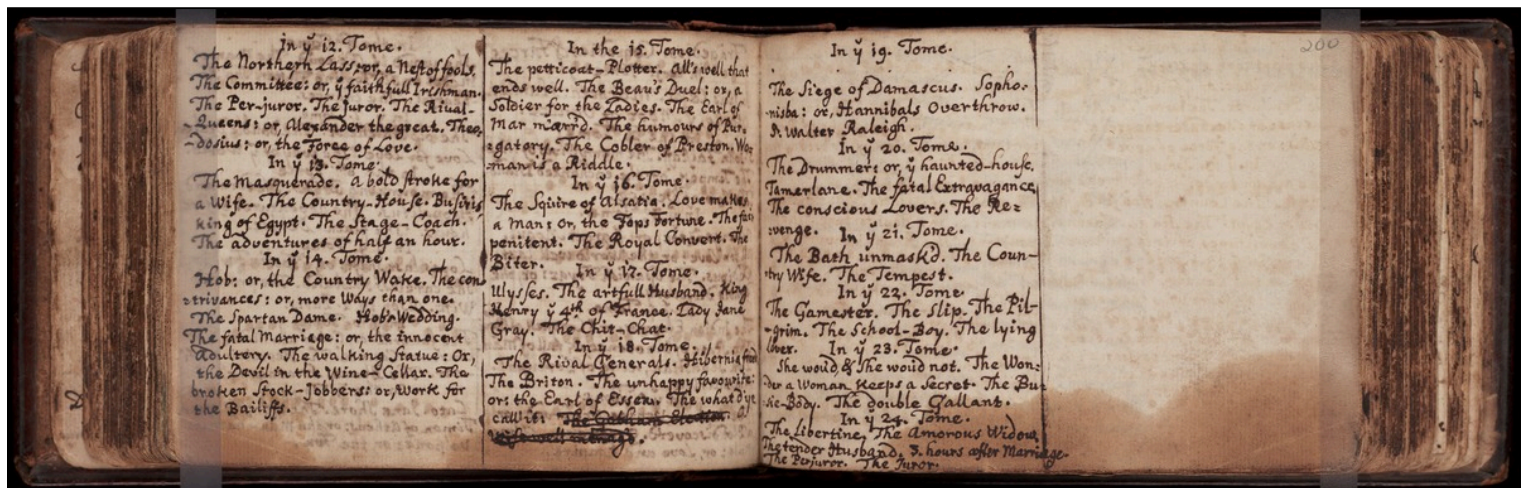 In ÿ 12. Tome.
The Northern Lass: or, a Nest of fools.
The Committee: or, ÿ faithfull Irishman.
The Per-juror. The Juror. The Rival-
-Queens: or, Alexander the great. Theo,
-dosius: or, the Force of Love.
In ÿ 13. Tome.
The Masquerade. a bold stroke for
a Wife. The Country-House. Busiris
king of Egypt. The Stage-Coach.
The adventures of half an hour.
In ÿ 14. Tome.
Hob: or, the Country Wake. The con
=trivances: or, more Ways than one.
The Spartan Dame. Hob's Wedding.
The fatal Marriage: or, the innocent
Adultery. The walking Statue: Or,
the Devil in the Wine-Cellar. The
broken Stock-Jobbers: or, work for
the Bailiffs.
In the 15. Tome.
The petticoat-Plotter. All's well that
ends well. The Beau's Duel: or, a
Soldier for the Ladies. The Earl of
Mar marr'd. The humours of Pur=
=gatory. The Cobler of Preston. Wo=
=man is a Riddle.
In ÿ 16. Tome.
The Squire of Alsatia. Love makes
a Man: Or, the Fops Fortune. The fair
penitent. The Royal Convert. The
Biter.
In ÿ 17. Tome.
Ulysses. The artfull Husband. King
Henry ÿ 4th of France. Lady Jane
Gray. The Chit-Chat.
In ÿ 18. Tome.
The Rival Generals. Hibernia freed
The Briton. The unhappy favourite:
or: the Earl of Essex. The what d'ye
call it: The Gotham Election. A
Wife well manag'd.
In ÿ 19. Tome.
The Siege of Damascus. Sopho-
-nisba: or, Hannibals Overthrow.
Sr. Walter Raleigh.
In ÿ 20. Tome.
The Drummer: or, ÿ haunted-house.
Tamerlane. The fatal Extravagance,
The conscious Lovers. The Re=
=venge.
In ÿ 21. Tome.
The Bath unmask'd. The Coun-
-try Wife. The Tempest.
In ÿ 22. Tome.
The Gamester. The Slip. The Pil-
-grim. The School-Boy. The lying
lover.
In ÿ 23. Tome.
She woud & she woud not. The Won=
=der a Woman keeps a Secret. The Bu=
=sie-Body. The double Gallant.
In ÿ 24. Tome.
The Libertine. The Amorous Widow.
The tender Husband. 3. hours after Marriage.
The Perjuror. The Juror.
200